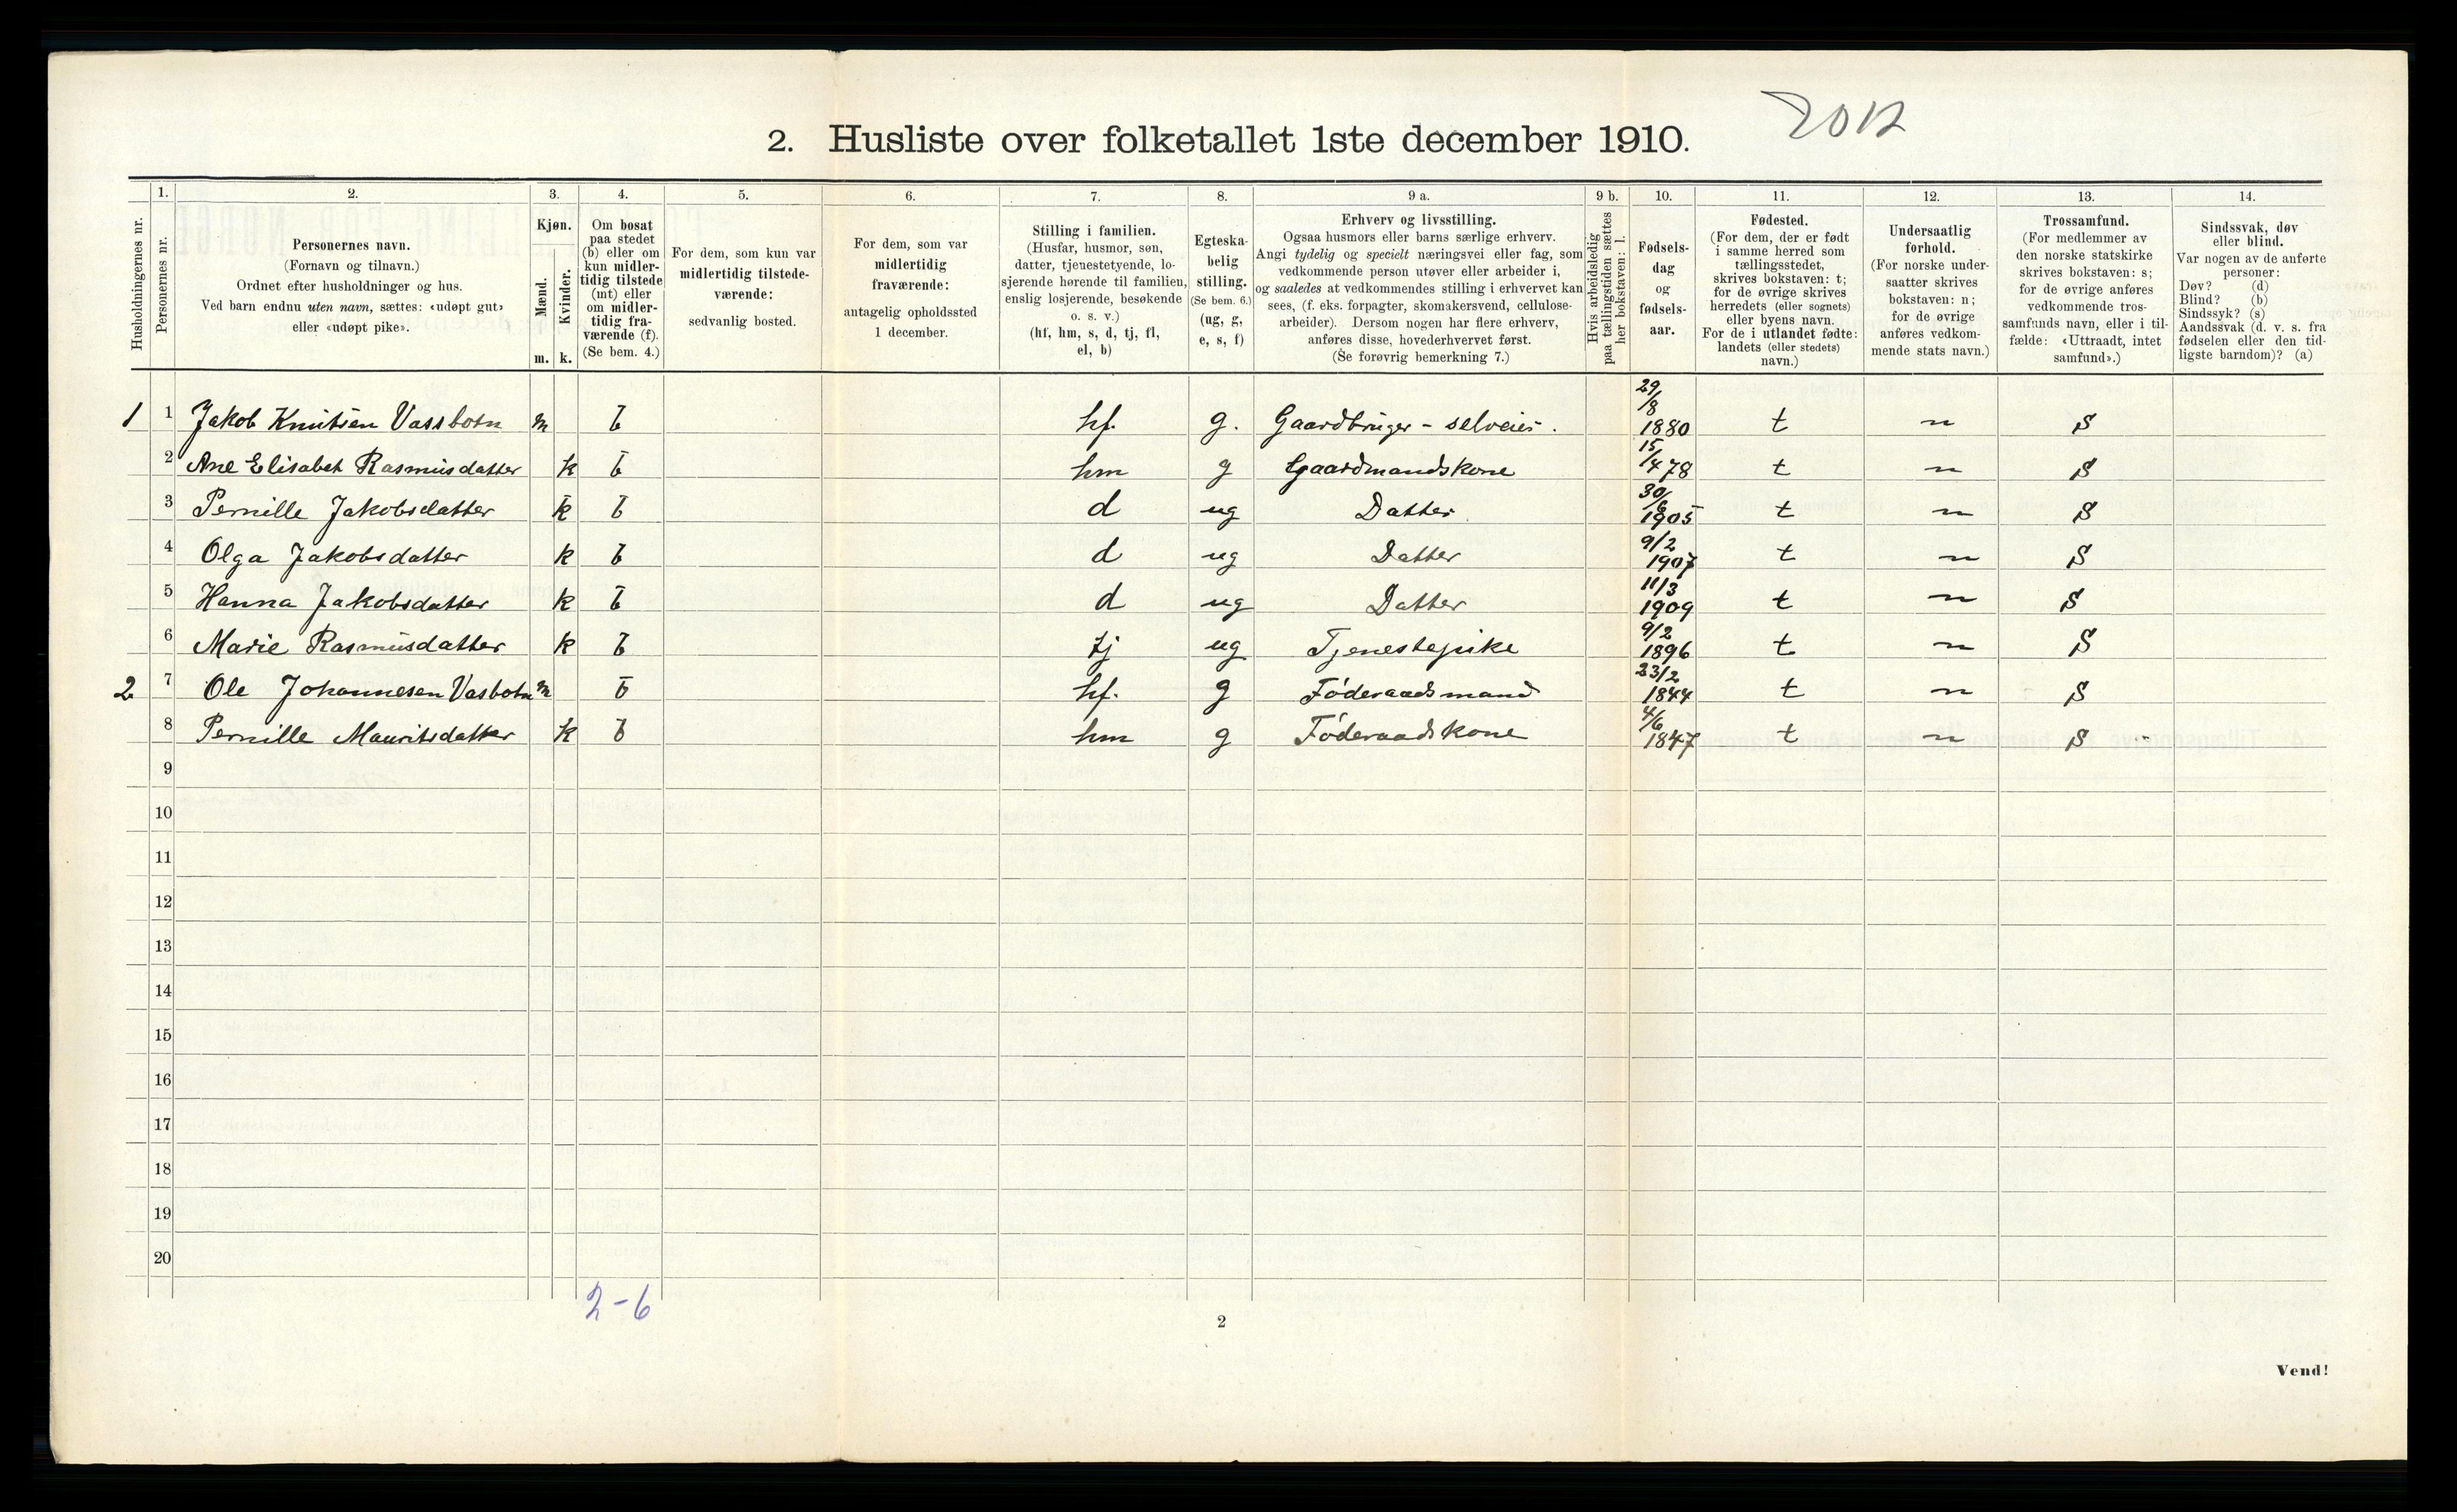 2012
2. Husliste over folketallet 1ste december 1910.
Husholdningernes nr.
1.
Personernes nr.
2.
Personernes navn.
(Fornavn og tilnavn.)
Ordnet efter husholdninger og hus.
Ved barn endnu uten navn, sættes: «udøpt gut»
eller «udøpt pike».
3.
Kjøn.
Mænd.
Kvinder.
m. k.
4.
Om bosat
paa stedet
(b) eller om
kun midler-
tidig tilstede
(mt) eller
om midler-
tidig fra-
værende (f).
(Se bem. 4.)
5.
For dem, som kun var
midlertidig tilstede-
værende:
sedvanlig bosted.
6.
For dem, som var
midlertidig
fraværende:
antagelig opholdssted
1 december.
7.
Stilling i familien.
(Husfar, husmor, søn,
datter, tjenestetyende, lo-
sjerende hørende til familien,
enslig losjerende, besøkende
o. s. v.)
(hf, hm, s, d, tj, fl,
el, b)
8.
Egteska-
belig
stilling.
(Se bem. 6.)
(ug, g,
e, s, f)
9 a.
Erhverv og livsstilling.
Ogsaa husmors eller barns særlige erhverv.
Angi tydelig og specielt næringsvei eller fag, som
vedkommende person utøver eller arbeider i,
og saaledes at vedkommendes stilling i erhvervet kan
sees, (f. eks. forpagter, skomakersvend, cellulose-
arbeider). Dersom nogen har flere erhverv,
anføres disse, hovederhvervet først.
(Se forøvrig bemerkning 7.)
9 b.
Hvis arbeidsledig
paa tællingstiden sættes
her bokstaven: l.
10.
Fødsels-
dag
og
fødsels-
aar.
11.
Fødested.
(For dem, der er født
i samme herred som
tællingsstedet,
skrives bokstaven: t;
for de øvrige skrives
herredets (eller sognets)
eller byens navn.
For de i utlandet fødte:
landets (eller stedets)
navn.)
12.
Undersaatlig
forhold.
(For norske under-
saatter skrives
bokstaven: n;
for de øvrige
anføres vedkom-
mende stats navn.)
13.
Trossamfund.
(For medlemmer av
den norske statskirke
skrives bokstaven: s;
for de øvrige anføres
vedkommende tros-
samfunds navn, eller i til-
fælde: «Uttraadt, intet
samfund».)
14.
Sindssvak, døv
eller blind.
Var nogen av de anførte
personer:
Døv? (d)
Blind? (b)
Sindssyk? (s)
Aandssvak (d. v. s. fra
fødselen eller den tid-
ligste barndom)? (a)
1 1 Jakob Knutsen Vassbotn m b hf. g. Gaardbruger - selveier. 29/8 1880 t n S
2 Ane Elisabet Rasmusdatter k b hm g Gaardmandskone 15/4 78 t n S
3 Pernille Jakobsdatter k b d ug Datter 30/6 1905 t n S
4 Olga Jakobsdatter k b d ug Datter 9/2 1907 t n S
5 Hanna Jakobsdatter k b d ug Datter 11/3 1909 t n S
6 Marie Rasmusdatter k b tj ug Tjenestepike 9/2 1896 t n S
2 7 Ole Johannesen Vasbotn m b hf. g Føderaadsmand 23/2 1844 t n S
8 Pernille Mauritsdatter k b hm g Føderaadskone 4/6 1847 t n S
9
10
11
12
13
14
15
16
17
18
19
20
2-6
2
Vend!